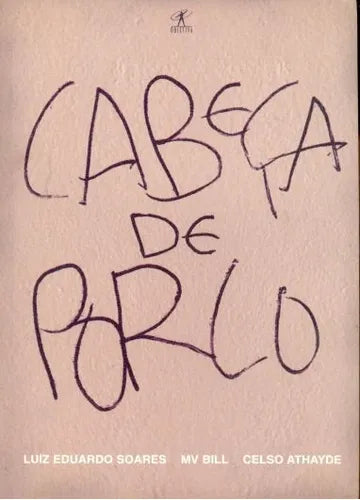 OBJETIVA
CABEÇA
DE
PORCO
LUIZ EDUARDO SOARES MV BILL CELSO ATHAYDE